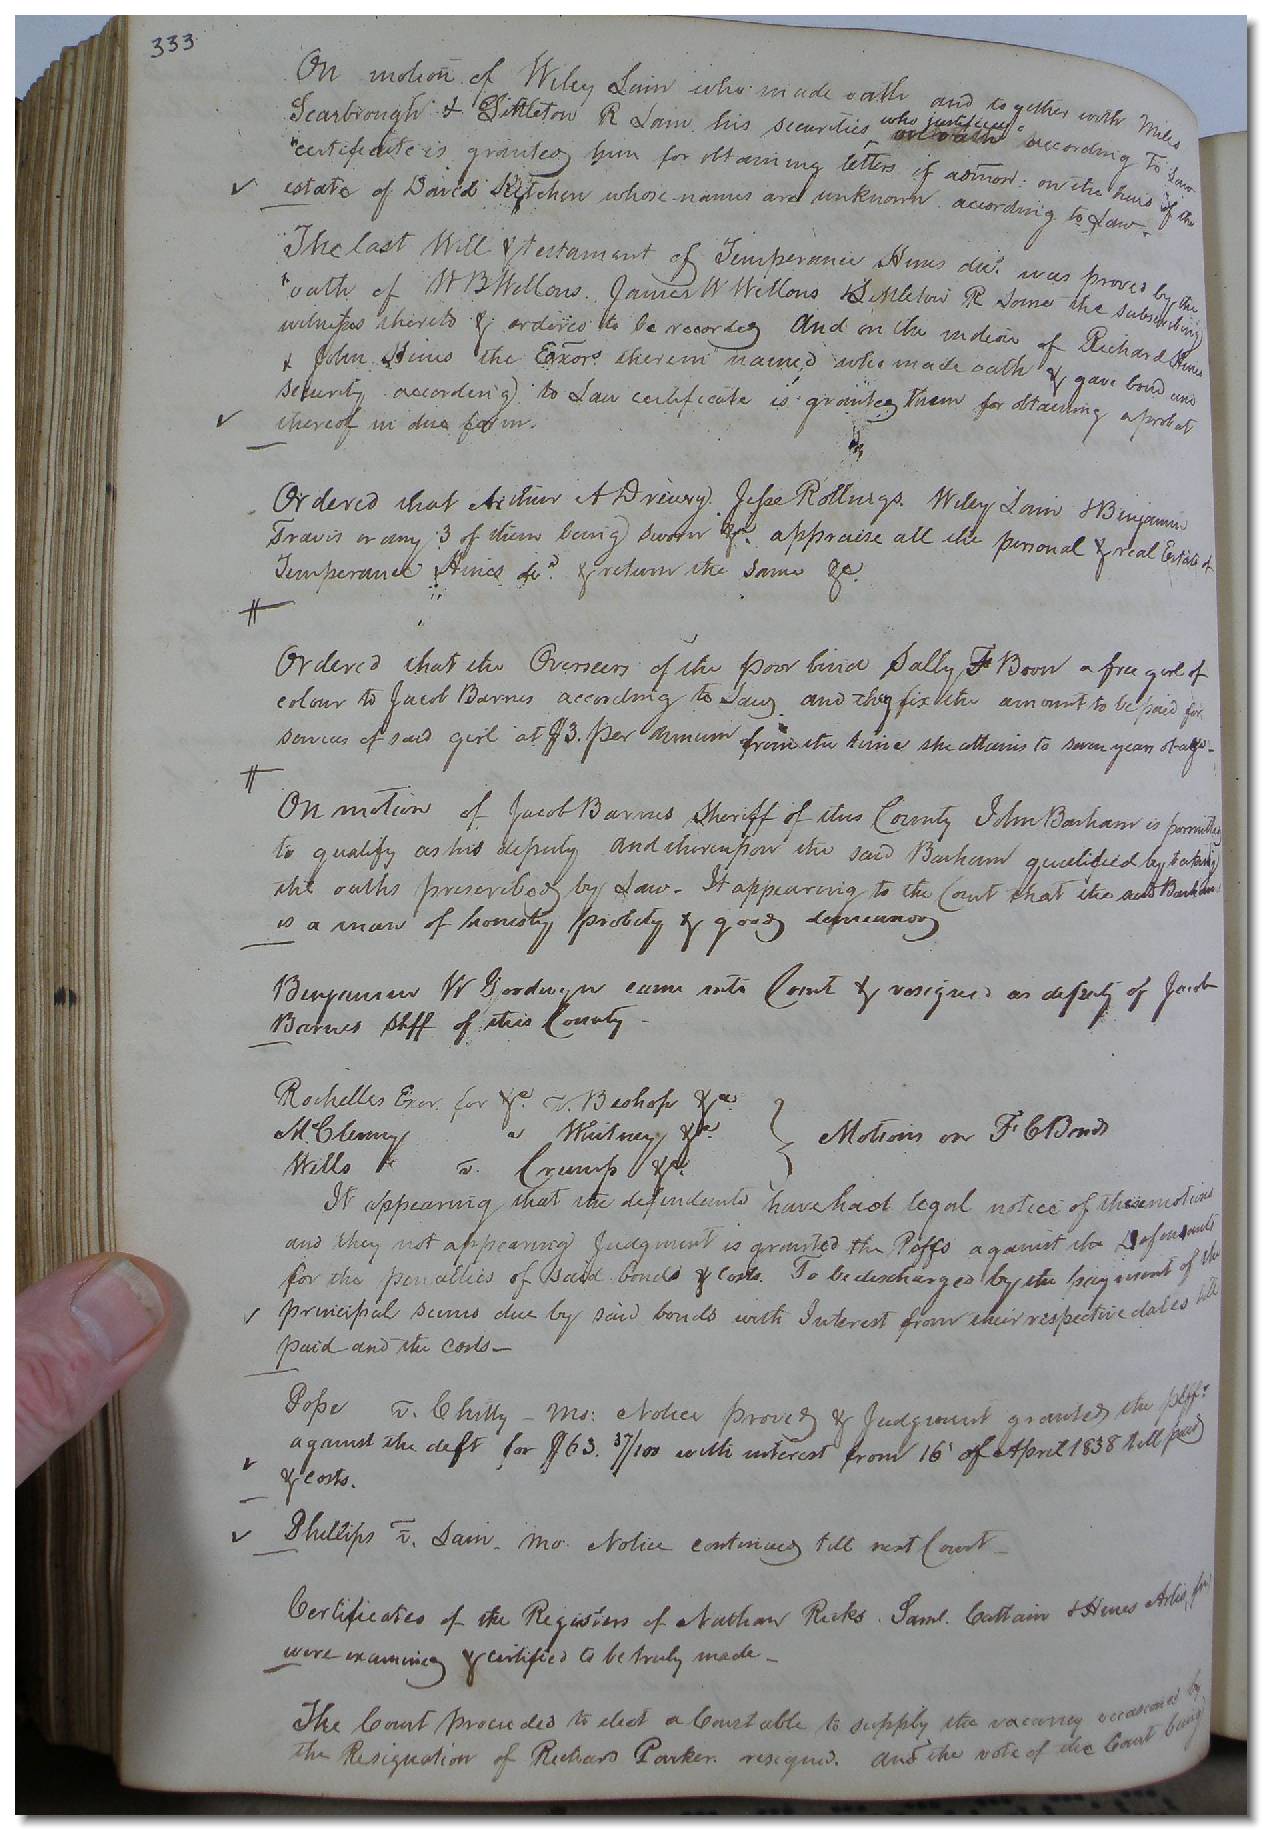 333
On motion of Wiley Lain who made oath and together with Miles
Scarbrough & Littleton R Lain his securities who justified on oath according to Law
certificate is granted him for obtaining letters of admon: on the heirs of the
estate of David Kitchen whose names are unknown according to Law.
The last Will & testament of Temperance Hines decd. was proved by the
oath of W B Wellons. James W Wellons & Littleton R Lane the subscribing
witness thereto & ordered to be recorded And on the motion of Richard Hines
& John Hines the Exors therein named who made oath & gave bond and
security according to Law certificate is granted them for obtaining a probat
thereof in due form.
Ordered that Arthur A Drewry. Jesse Rollings. Wiley Lain & Benjamin
Travis or any 3 of them being sworn &c. appraise all the personal & real Estate of
Temperance Hines decd. & return the same &c.
Ordered that the Overseers of the poor bind Sally Boon a free girl of
colour to Jacob Barnes according to Law and they fix the amount to be paid for
services of said girl at $3. per annum from the time she attains to seven years of age-
On motion of Jacob Barnes Sheriff of this County John Barham is permitted
to qualify as his deputy and thereupon the said Barham qualified by taking
the oaths prescribed by Law- It appearing to the Court that the said Barham
is a man of honesty probity & good demeanor
Benjamin W Goodwyn came into Court & resigned as deputy of Jacob
Barnes Shff of this County-
Rochelles Exor. for &c. v. Bishop &c.
McClenny v Whitney &c. Motions on F C Bonds
Wills v. Crump &c.
It appearing that the defendants have had legal notice of these motions
and they not appearing Judgment is granted the Plffs against the Defendants
for the penalties of said bonds & costs. To be discharged by the payment of the
principal sums due by said bonds with Interest from their respective dates till
paid and the costs-
Pope v. Chitty - Mo: Notice proved & Judgment granted the plff.
against the deft for $63. 37/100 with interest from 16 of April 1838 till paid
& costs.
Phillips v. Lain- Mo. Notice continued till next Court-
Certificates of the Registers of Nathan Ricks. Saml. & Hines Artis
were examined & certified to be truly made-
The Court proceeded to elect a Constable to supply the vacancy occasioned by
the Resignation of Richard Parker resigned. And the vote of the Court being